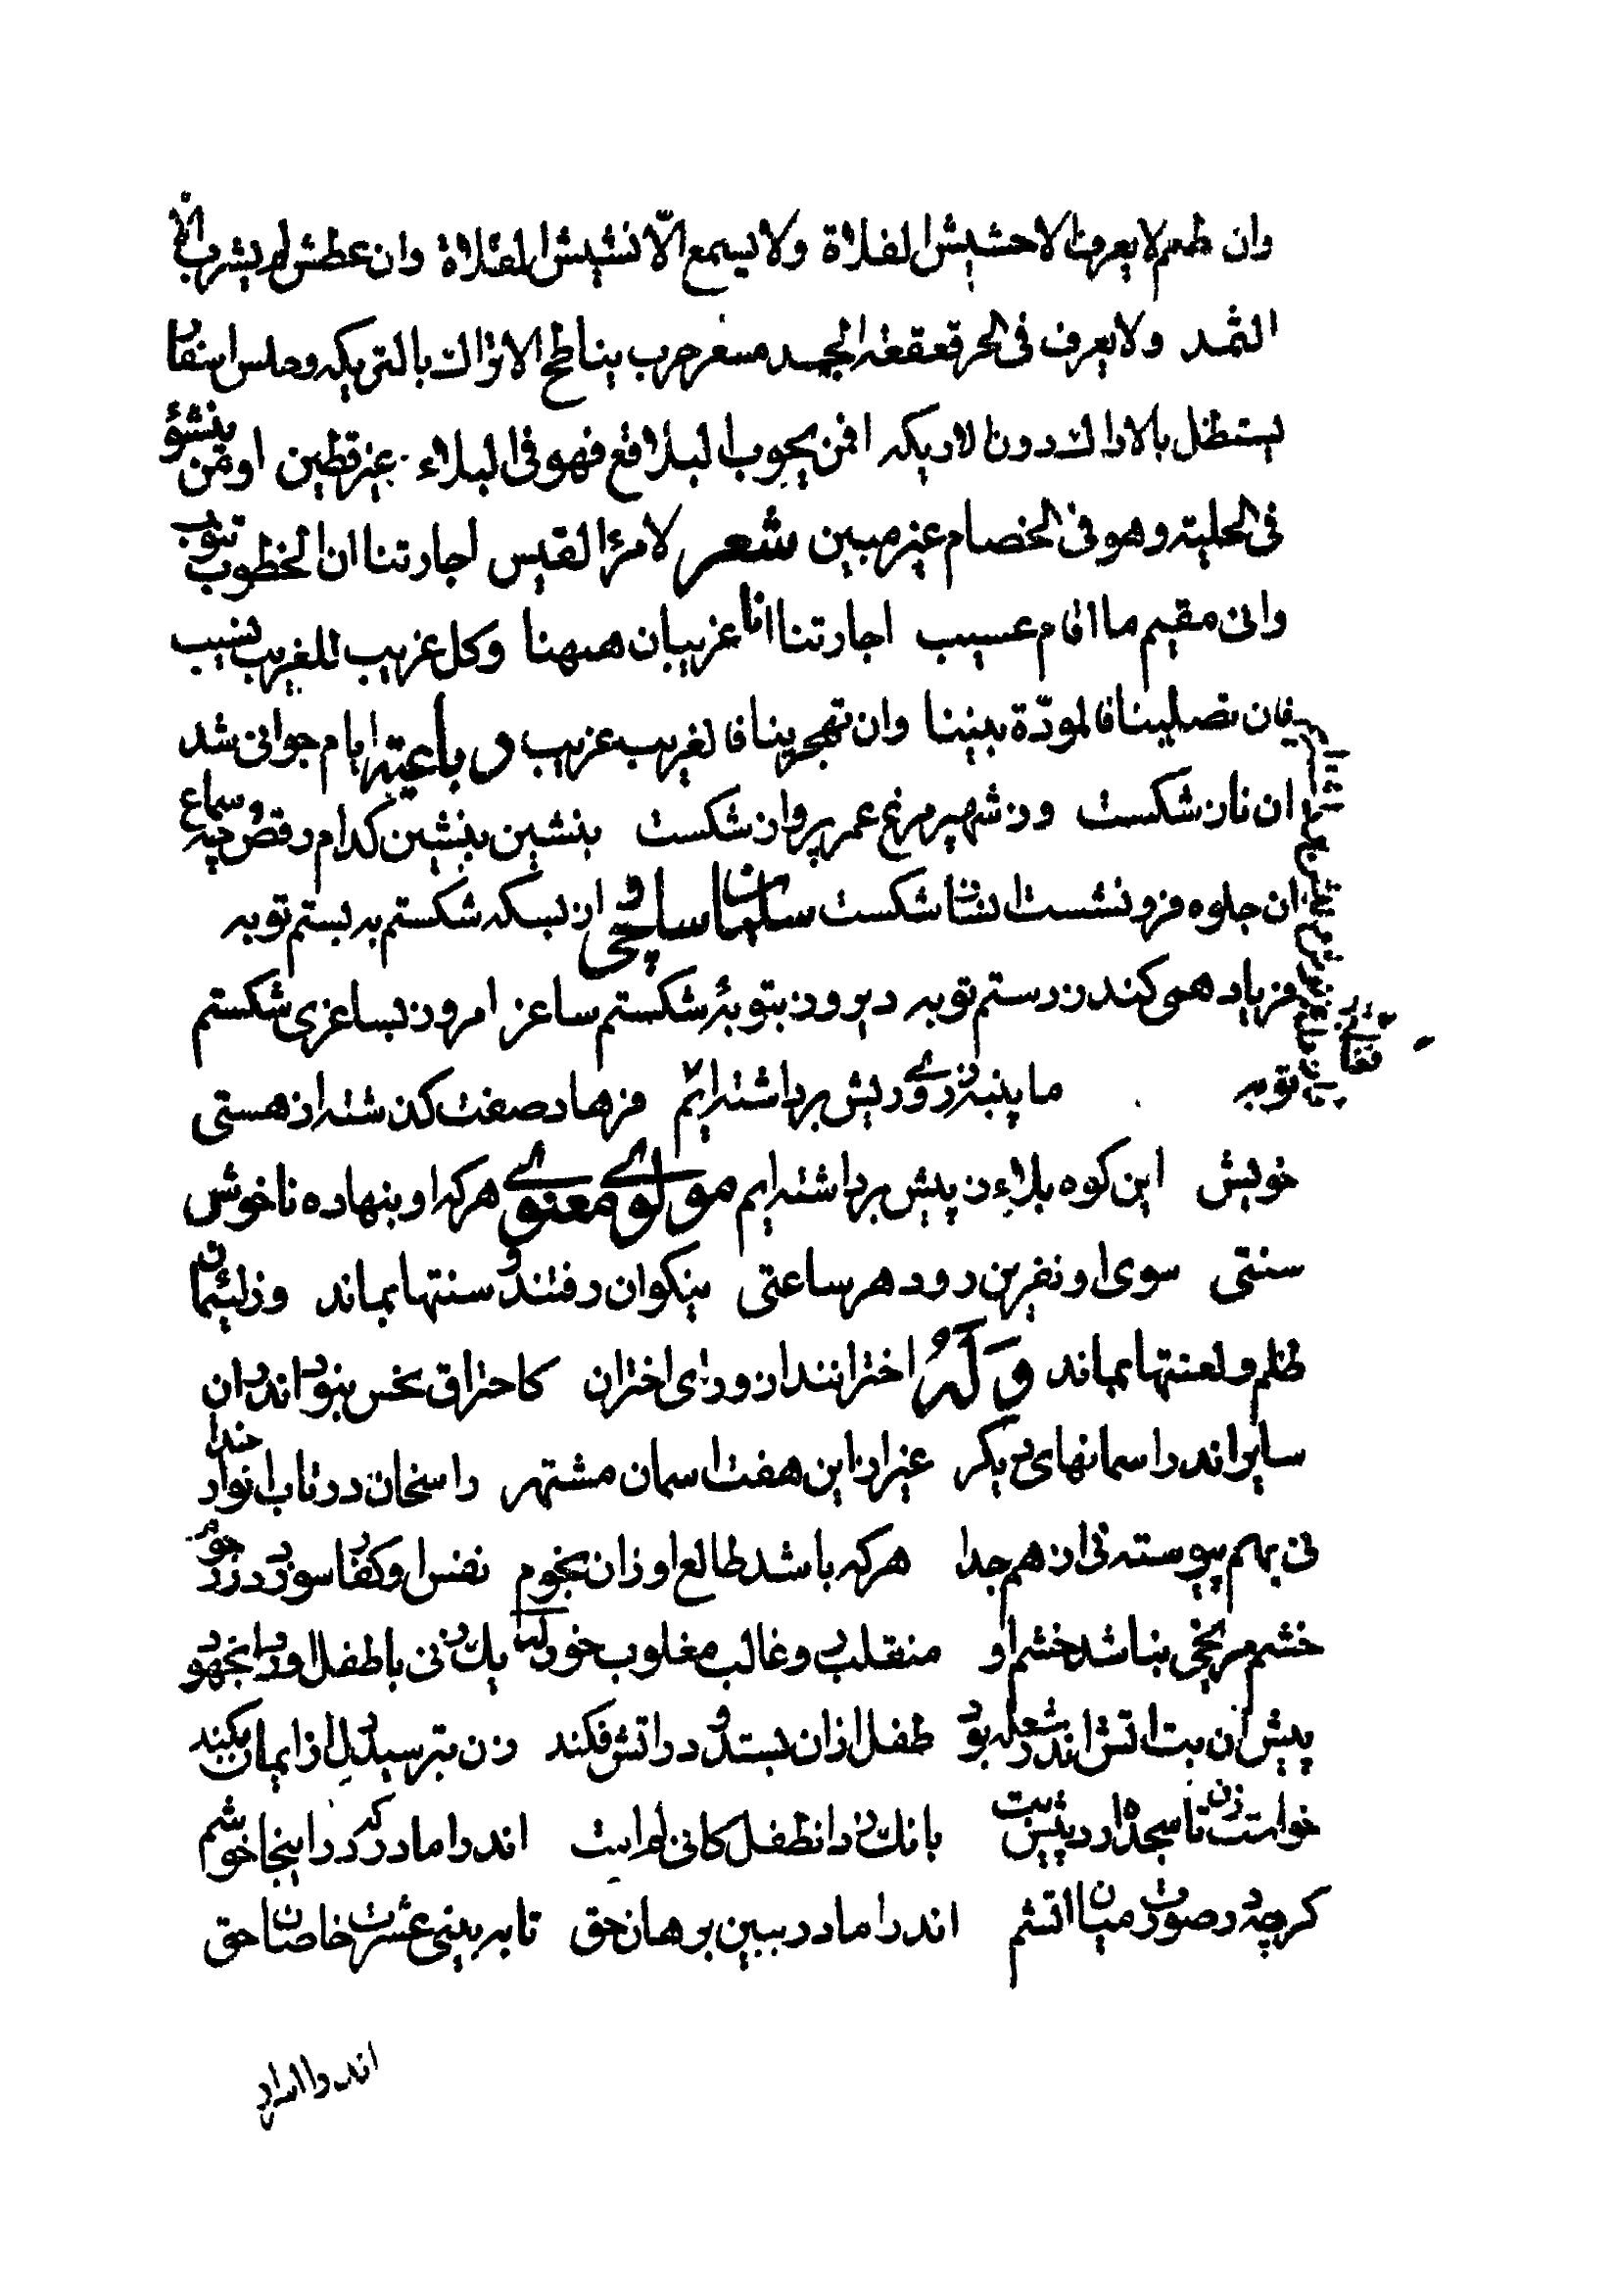 وان طعم لا يعرف الا حشيش الفلاة ولا يسمع الّا نشيش المقلاة وان عطش لم يشرب الا
الثمد ولا يعرف فى الحر قعقعة الجمد مسعر حرب يناطح الاتراك بالتريكه وحلس
يستظل بالاراك دون الاريكه افمن يجوب البلاقع فهو فى البلاء غير قطين اومن ينشؤ
فى الحلية وهو فى الخصام غير مبين شعر لامرؤ القيس اجارتنا ان الخطوب تنوب
وانى مقيم ما اقام عسيب اجارتنا انا غريبان ههنا وكل غريب للغريب نسيب
فان تصلينا فالمودّة بيننا وان تهجرينا فالغريب غريب و رباعيه ايام جوانى شد
ان ناز شكست وز شهپر مرغ عمر پرواز شكست بنشين بنشين كدام رقص چه وسماع
ان جلوه فرو نشست ان شكست سلمان ساوجى از بسكه شكستم به بستم توبه
فرياد همى كند ز دستم توبه ديروز بتوبهٔ شكستم ساغر امروز بساغرى شكستم
توبه ما پنبه ز روى ريش برداشته ايم فرهاد صفت كذشته از هستى
خويش اين كوه بلا ز پيش برداشته ايم مولوى معنوى هركه او بنهاده ناخوش
سنتى سوى او نفرين رود هر ساعتى نيكوان رفتند و سنتها بماند وز لئيمان
ظلم و لعنتها بماند وَلَهُ اخترانند از وراى اختران كاحتراق نحس نبود اندران
سايران در اسمانهاى ديكر غير اين هفت اسمان مشتهر راسخان در تاب انوار خدا
نى بهم پيوسته نى از هم جدا هركه باشد طالع او زان نجوم نفس او كفار سوزد در رجوم
خشم مريخى نباشد خشم او منقلب رو غالب مغلوب خو يك زنى با طفل اورد ان جهود
پيش ان بت اتش اندر شعله بود طفل ازان بستد و در اتش فكند زن بترسيد دل از ايمان بكند
خواست زن تا سجده ارد پيش بت بانك زد ان طفل كانى لم امت اندرا مادر كه در اينجا خوشم
كرچه در صورت ميان اتشم اندرا مادر ببين برهان حق تا به بينى عشرت خاصان حق
اندرا